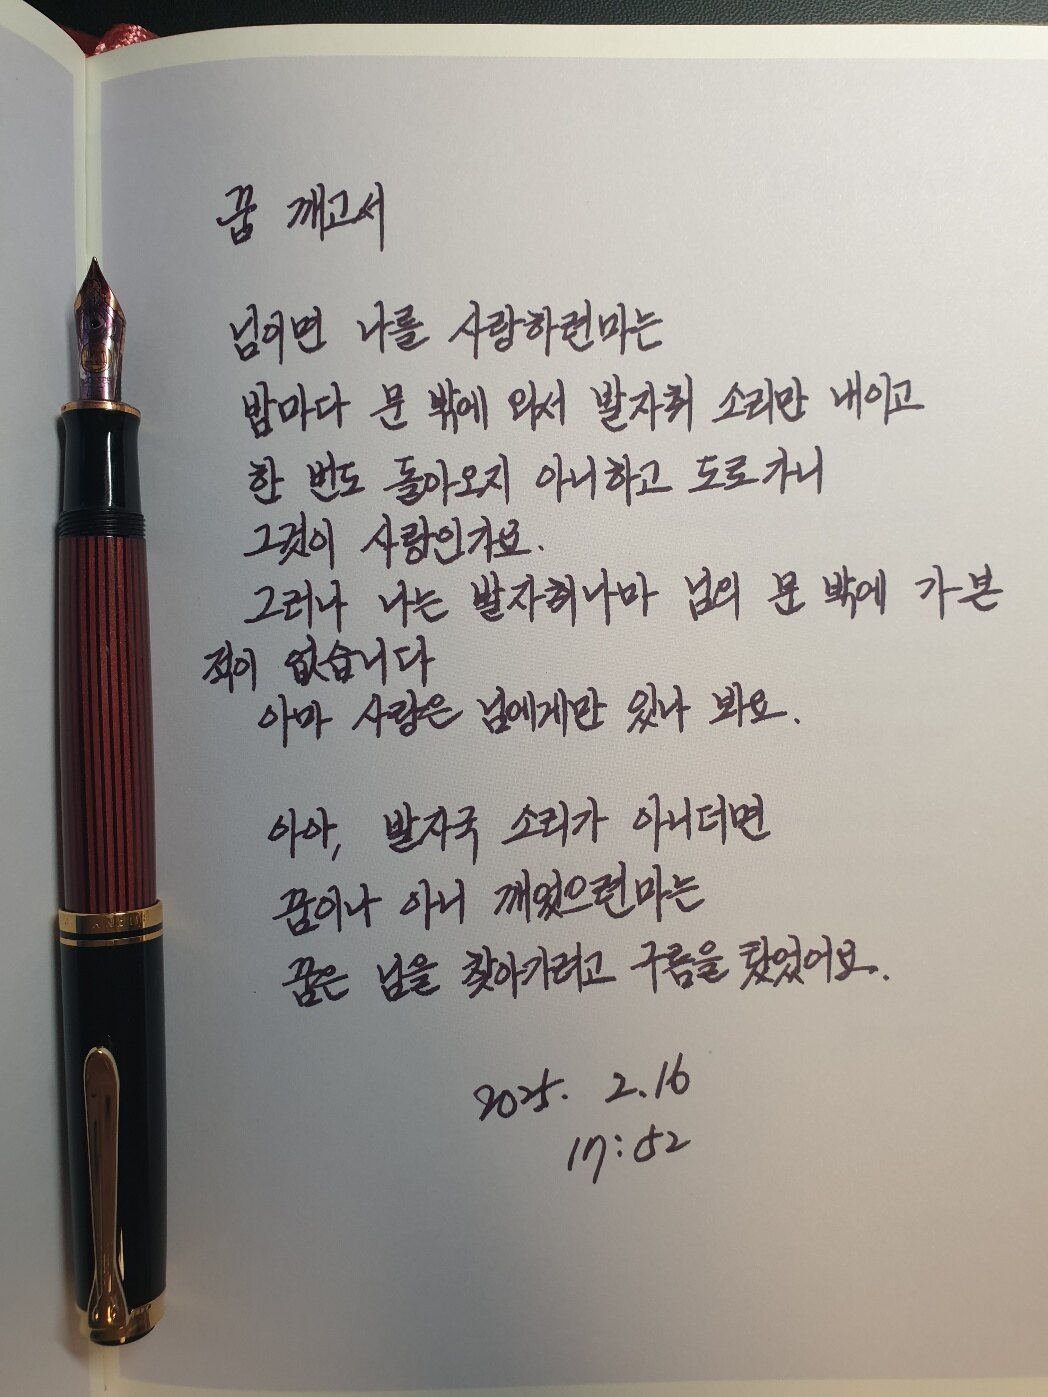 꿈 깨고서
님이면 나를 사랑하련마는
밤마다 문 밖에 와서 발자취 소리만 내이고
한 번도 돌아오지 아니하고 도로가니
그것이 사랑인가요.
그러나 나는 발자취나마 님의 문 밖에 가 본
적이 없습니다
아마 사랑은 님에게만 있나 봐요.
아아, 발자국 소리가 아니더면
꿈이나 아니 깨었으련마는
꿈은 님을 찾아가려고 구름을 탔었어요.
2025. 2.16
17:52